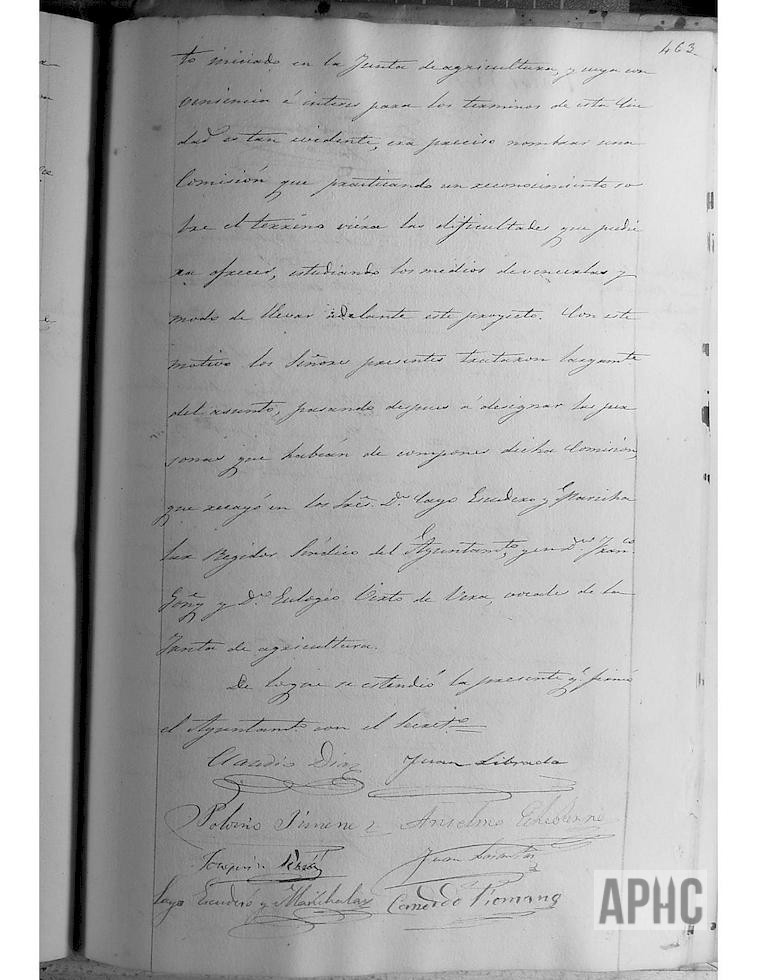 463
to iniciado en la Junta de agricultura, y cuya con
veniencia é interes para los terminos de esta Ciu
dad es tan evidente, era preciso nombrar una
Comisión que practicando un reconocimiento so
bre el terreno viéra las dificultades que pudie
ra ofrecer, estudiando los medios de vencerlas y
modo de llevar adelante este proyecto. Con este
motivo los Señores presentes trataron largamte
del asunto, pasando despues á designar las per
sonas que habian de componer dicha Comision,
que recayó en los Sres. Dn. Cayo Escudero y Maricha
lar Regidor Sindico del Ayuntamto, y en Dn. Franco.
Goñy y Dn. Eulogio Visto de Vera, vocales de la
Junta de agricultura.
De lo que se estendió la presente q. firmó
el Ayuntamto. con el Secreto.
Claudio Diaz Juan Librada
Jimenez Anselmo
Joaquin Juan
Cayo Escudero y Marichalar
APHC